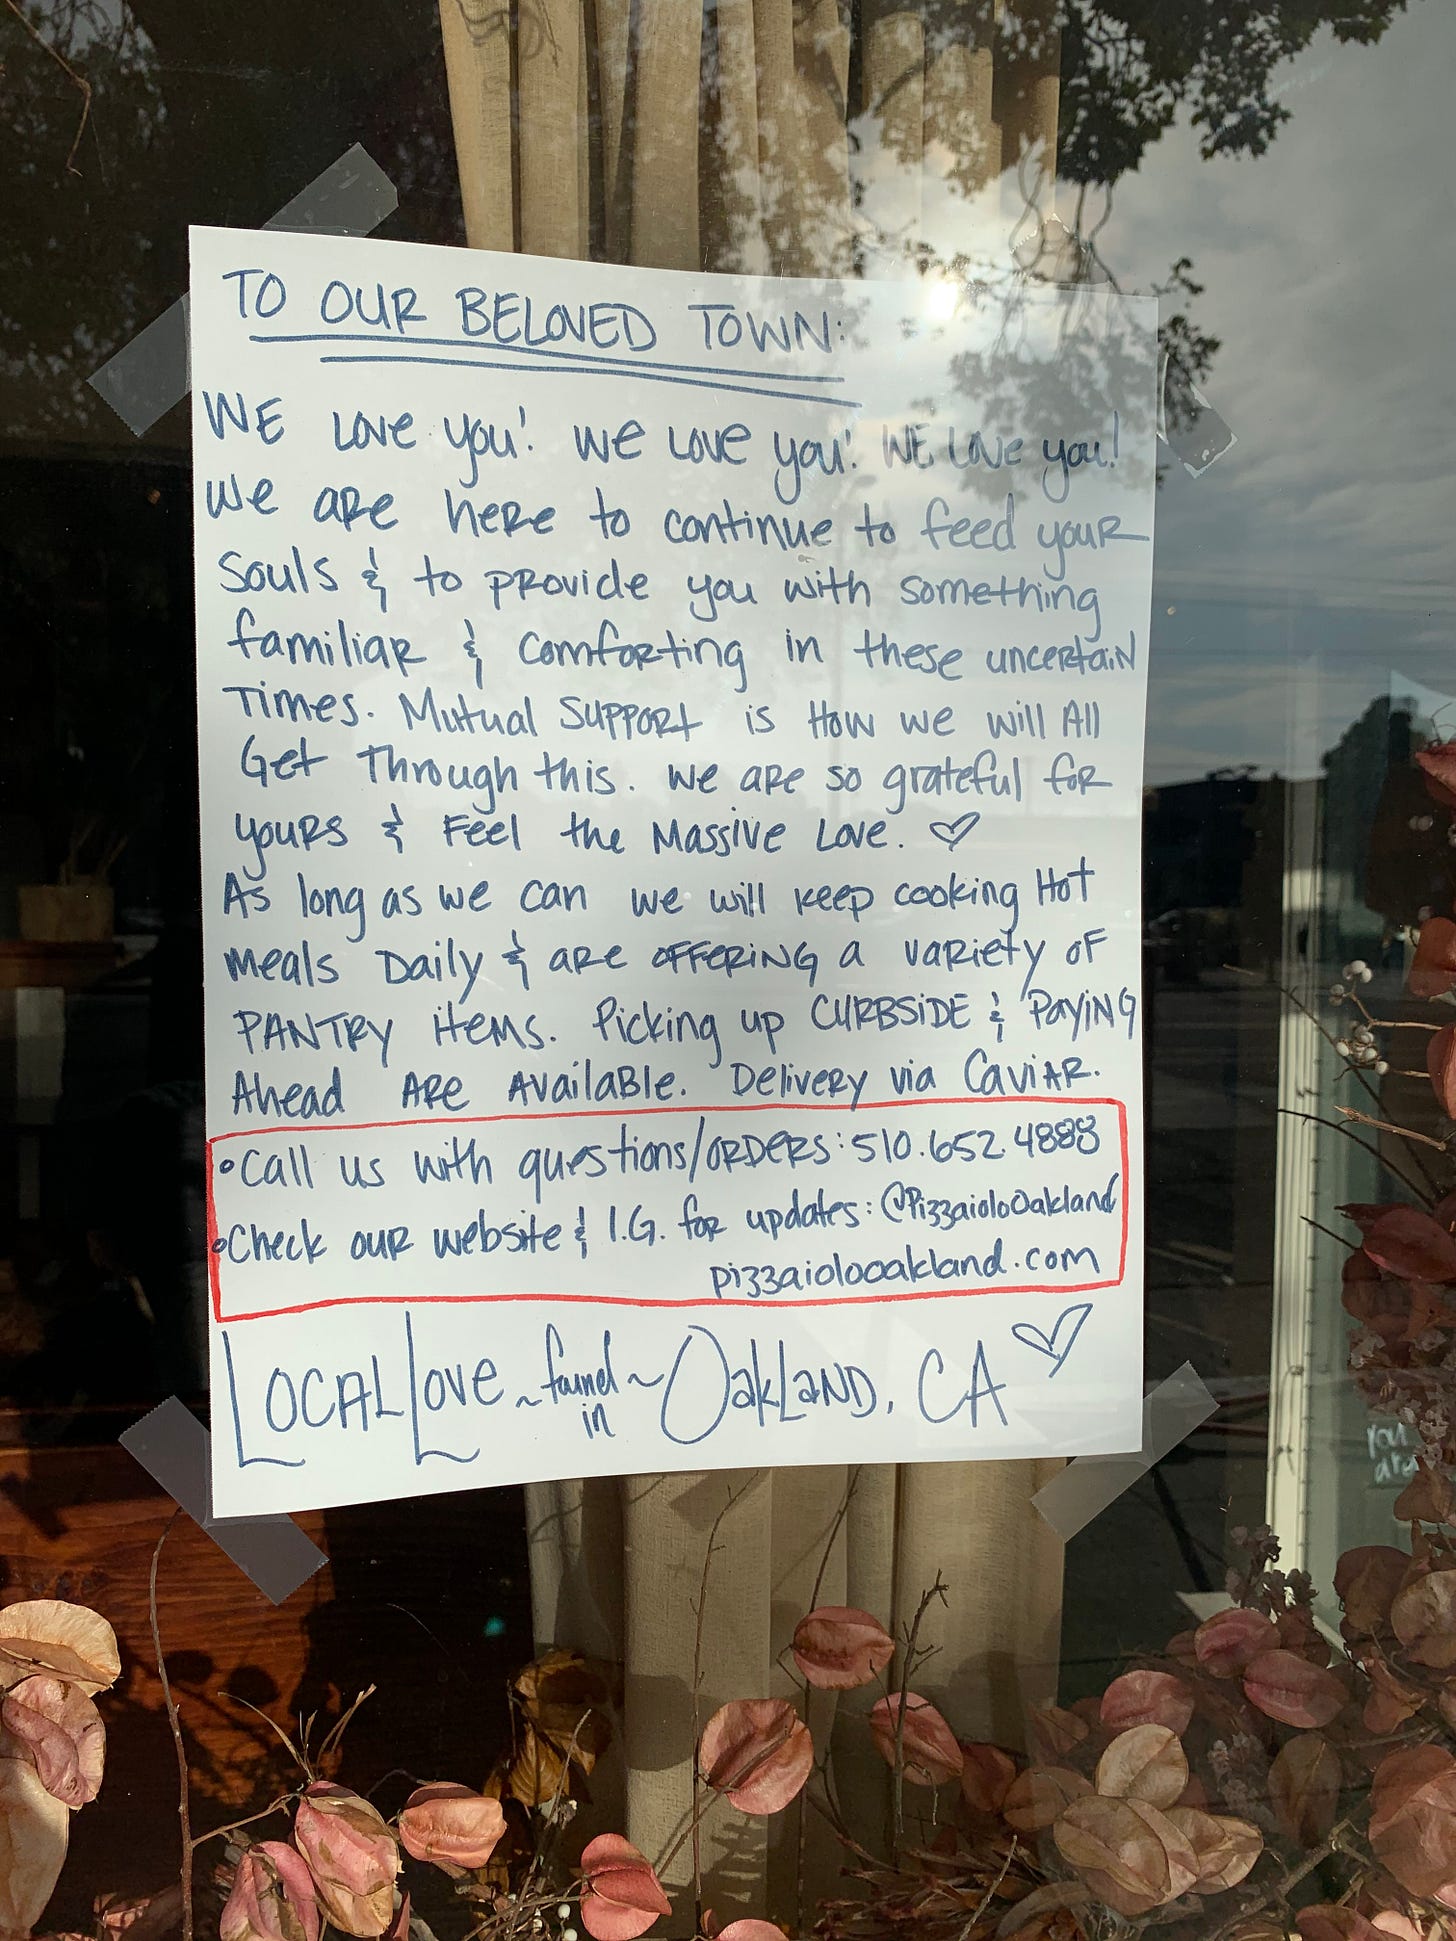 TO OUR BELOVED TOWN:
WE LOVE YOU! WE LOVE YOU! WE LOVE YOU!
We are here to continue to feed your
souls & to provide you with something
familiar & comforting in these uncertain
Times. Mutual Support is How we will All
Get Through this. We are so grateful for
yours & Feel the Massive Love. ♡
As long as we can we will keep cooking Hot
meals Daily & are OFFERING a variety of
PANTRY items. Picking up CURBSIDE & Paying
Ahead Are Available. Delivery via Caviar.
• Call us with questions/ORDERS: 510.652.4888
• Check our website & I.G. for updates: @PizzaioloOakland
pizzaiolooakland.com
LOCAL LOVE ~ found ~ OakLAND, CA ♡
in
You
are